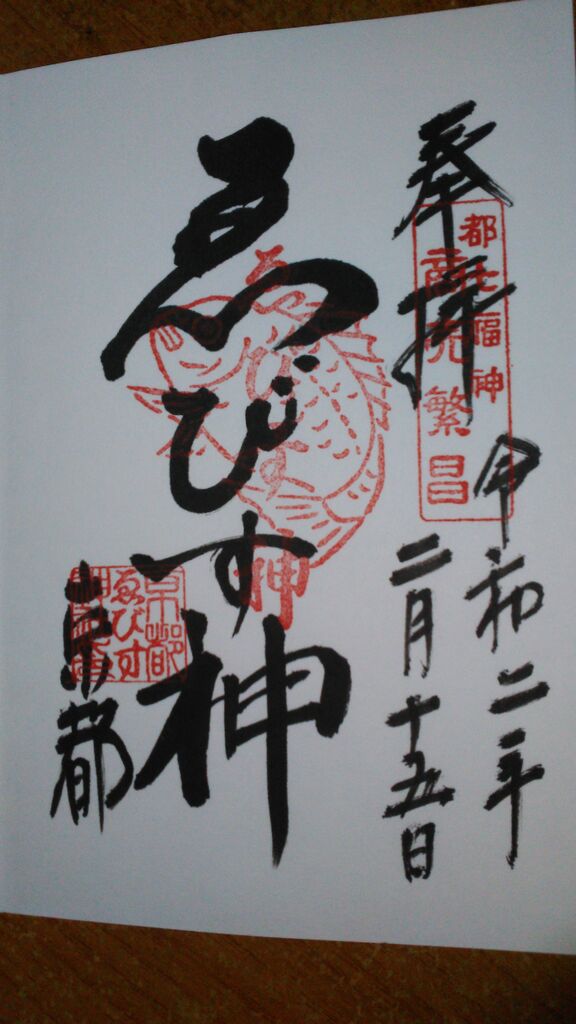 奉拝
都七福神
商売繁昌
令和二年
二月十五日
ゑびす神
ゑびす神
京都
京都
ゑびす